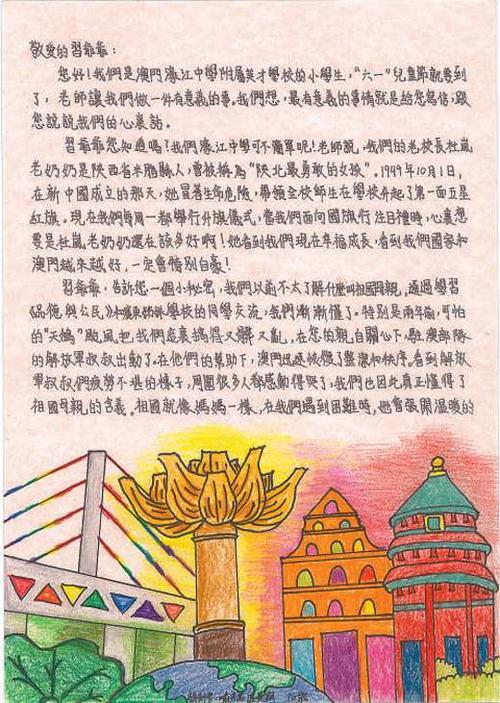 敬愛的習爺爺：
您好！我們是澳門濠江中學附屬英才學校的小學生，“六一”兒童節就要到
了，老師讓我們做一件有意義的事。我們想，最有意義的事情就是給您寫信，跟
您說說我們的心裏話。
習爺爺您知道嗎？我們濠江中學可不簡單呢！老師說，我們的老校長杜嵐
老奶奶是陝西省米脂縣人，曾被稱為“陝北最勇敢的女孩”。1949年10月1日，
在新中國成立的那天，她冒著生命危險，帶領全校師生在學校升起了第一面五星
紅旗。現在我們每周一都舉行升旗儀式，當我們面向國旗行注目禮時，心裏想
要是杜嵐老奶奶還在該多好啊！她看到我們現在幸福成長，看到我們國家和
澳門越來越好，一定會特別自豪！
習爺爺，告訴您一個小秘密，我們以前不太了解什麼叫祖國母親，通過學習
《品德與公民》和 學校的同學交流，我們漸漸懂了。特別是兩年前，可怕
的“天鴿”颱風把我們這裏搞得又髒又亂，在您的親自關心下，駐澳部隊
的解放軍叔叔出動了。在他們的幫助下，澳門迅速恢復了整潔和秩序。看到解放
軍叔叔們疲勞不堪的樣子，周圍很多人都感動得哭了，我們也因此真正懂得了
祖國母親的含義。祖國就像媽媽一樣，在我們遇到困難時，她會張開溫暖的